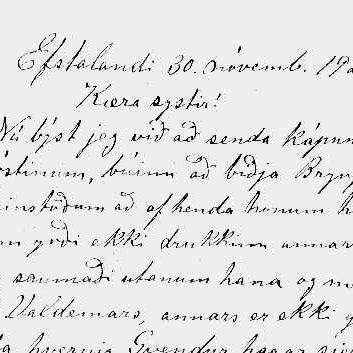 Efstalandi 30. nóvemb. 19
Kæra systir!
Nú býst jeg við að senda kápun
póstinum, búinn að biðja Bryn
instöðum að afhenda honum h
yrði ekki drukkinn annar
saumaði utanum hana og m
Valdemars, annars er ekki
hvernig Gvendur hagar